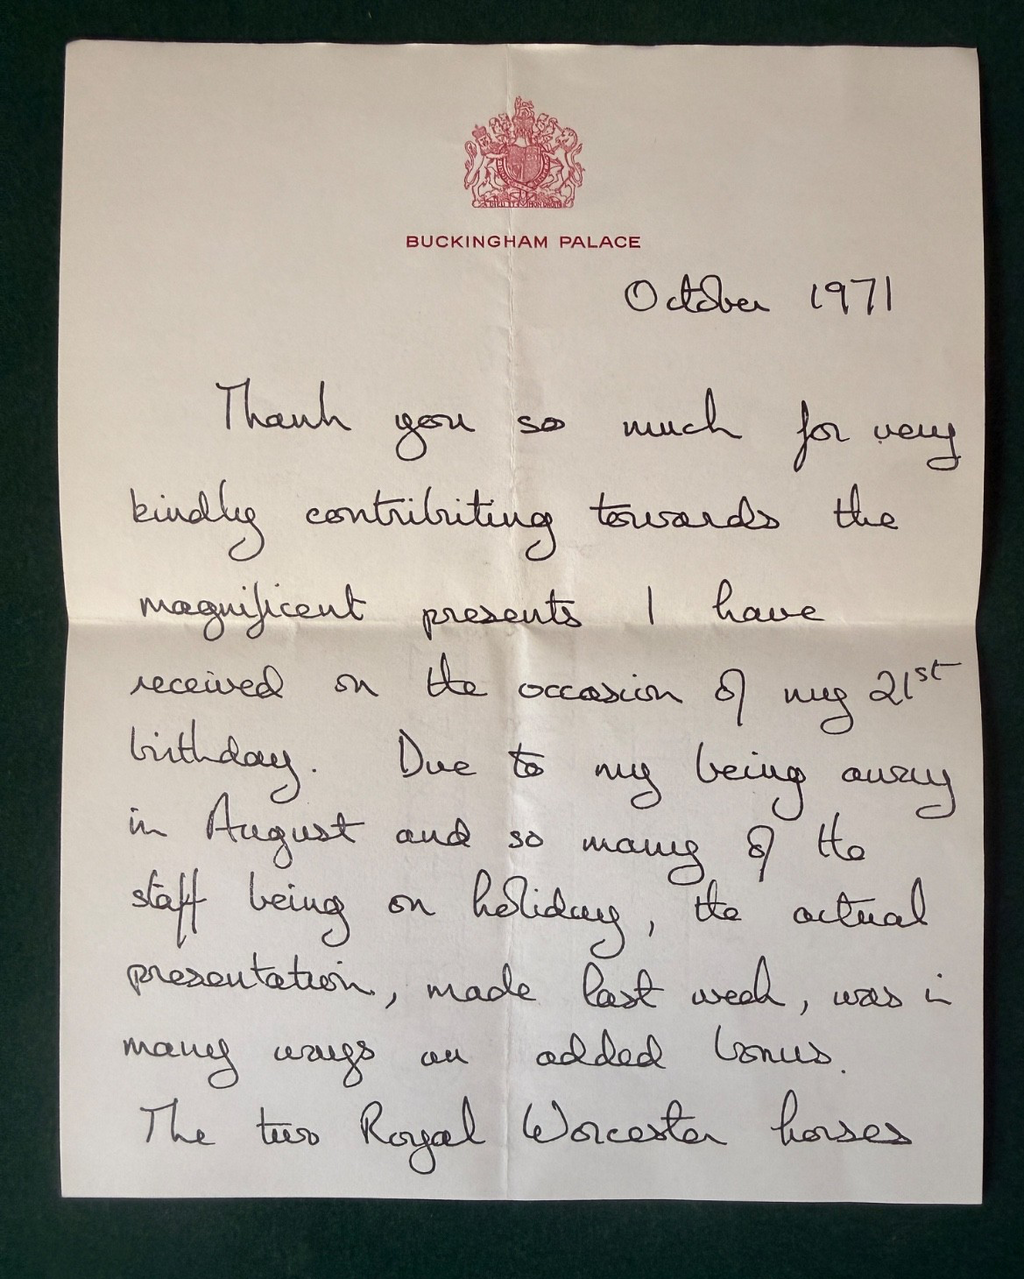 BUCKINGHAM PALACE
October 1971
Thank you so much for very
kindly contributing towards the
magnificent presents I have
received on the occasion of my 21st
birthday. Due to my being away
in August and so many of the
staff being on holiday, the actual
presentation, made last week, was in
many ways an added bonus.
The two Royal Worcester horses